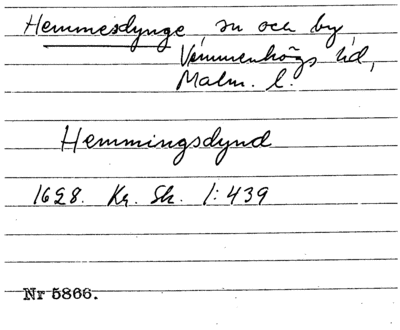 Hemmesdynge, sn och by
Vemmenhögs hd,
Malm. l.
Hemmingsdynd
1628. Kr. Sk. 1:439
Nr 5866.